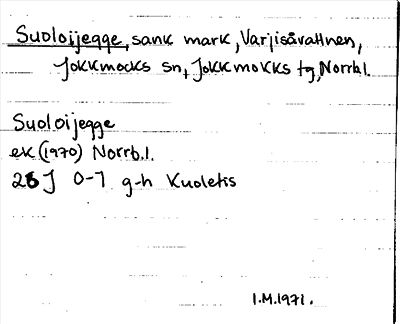 Suoloijegge, sank mark, Varjisåvattnen,
Jokkmokks sn, Jokkmokks tg, Norrb l.
Suoloijegge
ek (1970) Norrb. l.
26 J 0-1 g-h Kuoletis
I.M. 1971.